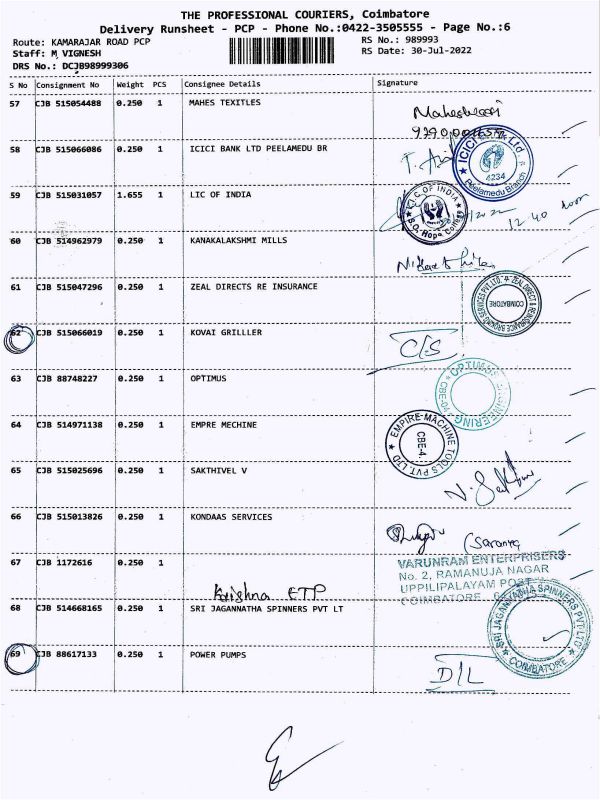 THE PROFESSIONAL COURIERS, Coimbatore
Delivery Runsheet - PCP - Phone No.:0422-3505555 - Page No.:6
Route: KAMARAJAR ROAD PCP
RS No.: 989993
Staff: M VIGNESH
RS Date: 30-Jul-2022
DRS No.: DCJB98999306
S No Consignment No Weight PCS Consignee Details Signature
57 CJB 515054488 0.250 1 MAHES TEXITLES
58 CJB 515066086 0.250 1 ICICI BANK LTD PEELAMEDU BR
ICICI Ltd. 6234 Peelamedu Branch
59 CJB 515031057 1.655 1 LIC OF INDIA
LIC OF INDIA S.O. Hope College
12.40
60 CJB 514962979 0.250 1 KANAKALAKSHMI MILLS
61 CJB 515047296 0.250 1 ZEAL DIRECTS RE INSURANCE
COIMBATORE
62 CJB 515066019 0.250 1 KOVAI GRILLLER C/S
63 CJB 88748227 0.250 1 OPTIMUS
OPTIMUS ENGINEERING CBE-04
64 CJB 514971138 0.250 1 EMPRE MECHINE
EMPIRE MACHINE TOOLS PVT LTD CBE-4.
65 CJB 515025696 0.250 1 SAKTHIVEL V
66 CJB 515013826 0.250 1 KONDAAS SERVICES
(Saranya
67 CJB 1172616 0.250 1
Krishna ETP
VARUNRAM ENTERPRISERS
No. 2, RAMANUJA NAGAR
UPPILIPALAYAM POST
COIMBATORE
68 CJB 514668165 0.250 1 SRI JAGANNATHA SPINNERS PVT LT
SRI JAGANNATHA SPINNERS PVT LTD COIMBATORE
69 CJB 88617133 0.250 1 POWER PUMPS D/L